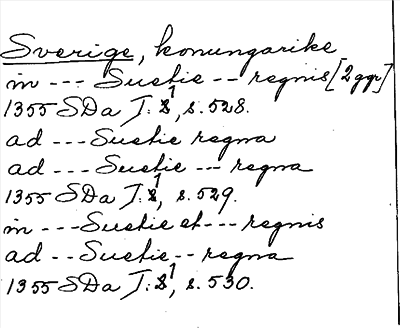 Sverige, konungarike
in --- Suetie -- regnis [2 ggr]
1355 SDa I:1, s. 528.
ad --- Suetie regna
ad --- Suetie --- regna
1355 SDa I:1, s. 529.
in --- Suetie et --- regnis
ad -- Suetie -- regna
1355 SDa I:1, s. 530.